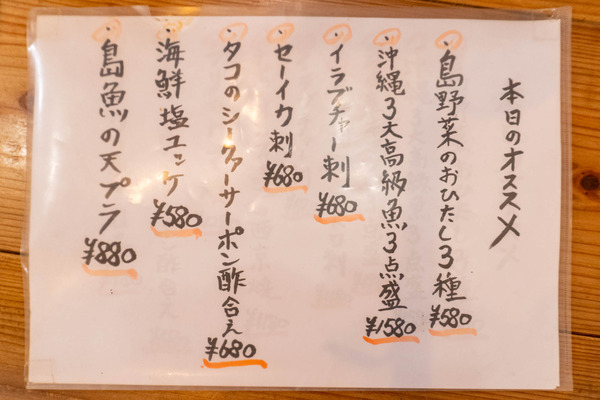 本日のオススメ
・島野菜のおひたし3種 ¥580
・沖縄3大高級魚3点盛 ¥1580
・イラブチャー刺 ¥680
・セーイカ刺 ¥680
・タコのシークァーサーポン酢合え ¥680
・海鮮塩ユッケ ¥580
・島魚の天プラ ¥880